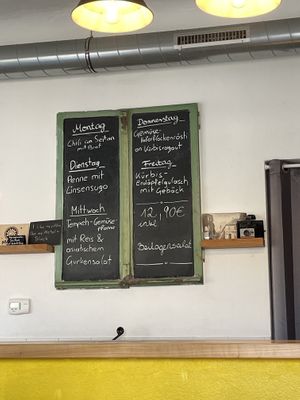 Montag
Chili con Seitan
mit Brot
Dienstag
Penne mit
Linsensugo
Mittwoch
Tempeh-Gemüse-
pfanne
mit Reis &
asiatischem
Gurkensalat
Donnerstag
Gemüse-
Kürbisragout
Freitag
Kürbis-
Erdäpfelgulasch
mit Gebäck
12,90€
inkl
Beilagensalat